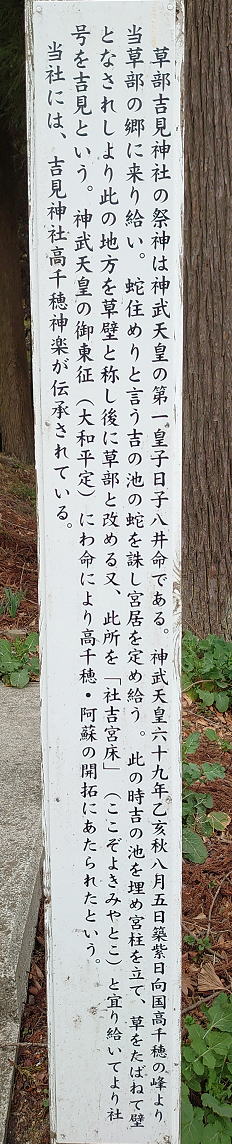 草部吉見神社の祭神は神武天皇の第一皇子日子八井命である。神武天皇六十九年乙亥秋八月五日築紫日向国高千穂の峰より
当草部の郷に来り給い。蛇住めりと言う吉の池の蛇を誅し宮居を定め給う。此の時吉の池を埋め宮柱を立て、草をたばねて壁
となされしより此の地方を草壁と称し後に草部と改める又、此所を「社吉宮床」（ここぞよきみやとこ）と宜り給いてより社
号を吉見という。神武天皇の御東征（大和平定）にわ命により高千穂・阿蘇の開拓にあたられたという。
当社には、吉見神社高千穂神楽が伝承されている。